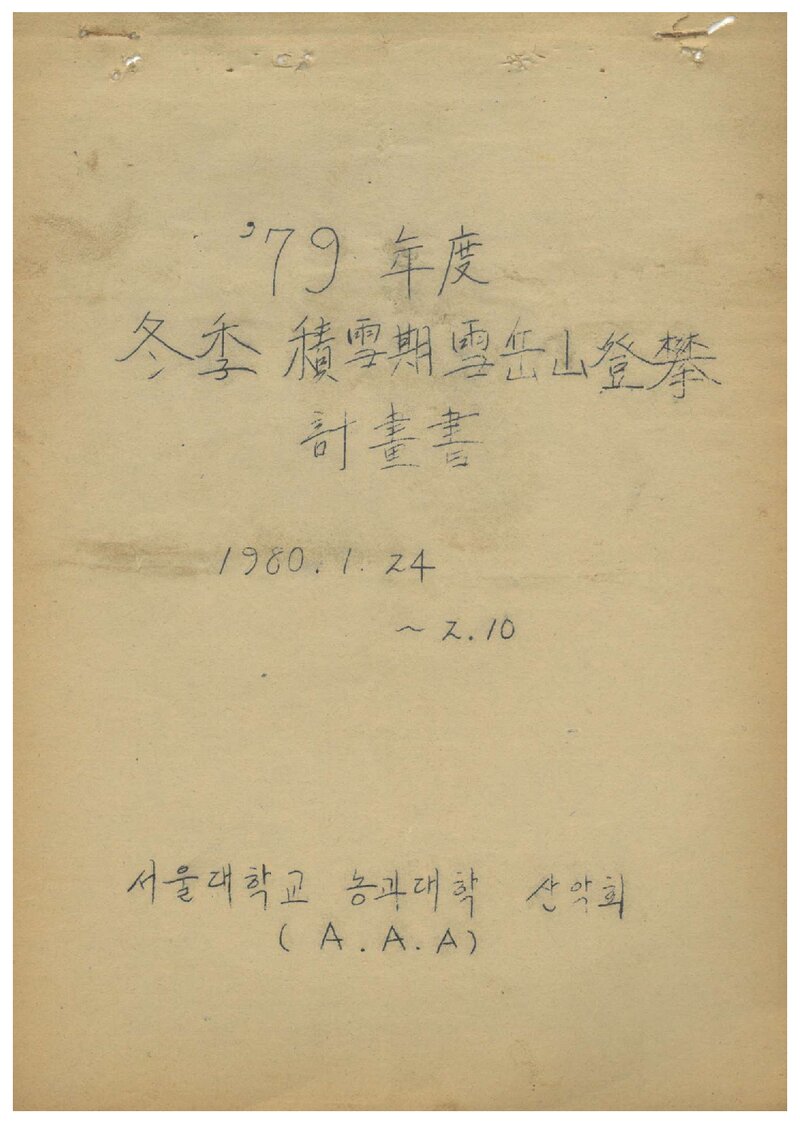 '79 年度
冬季 積雪期雪岳山登攀
計畫書
1980. 1. 24
~ 2. 10
서울대학교 농과대학 산악회
( A . A . A )